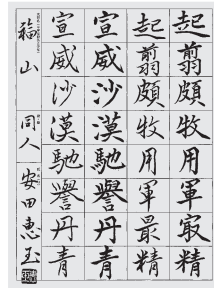 起翦頗牧用軍㝡精
起翦頗牧用軍最精
宣威沙漠馳譽丹青
宣威沙漠馳譽丹青
福山 同人 安田恵玉